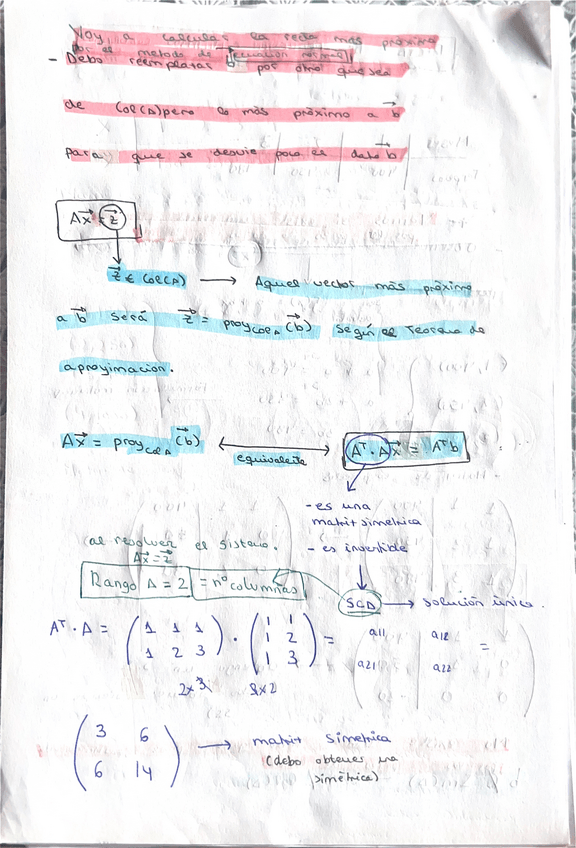 Voy a calcular la recta más próxima
por el metodo de ecuación normal
- Debo reemplazar b⃗ por otro que sea
de Col(A) pero lo más próximo a b⃗
para que se desvíe poco el dato b⃗
Ax⃗ = z⃗
z⃗ ∈ Col(A) → Aquel vector más próximo
a b⃗ será z⃗ = proy_Col A (b⃗) según el Teorema de
aproximacion.
Ax⃗ = proy_Col A (b⃗) ↔ equivalente Aᵀ·Ax⃗ = Aᵀb
- es una
matriz simetrica
- es invertible
(al resolver el sistema.
Ax⃗ = z⃗
Rango A = 2 = nº columnas
SCD → solución única.
Aᵀ·A = (1 1 1 / 1 2 3) · (1 1 / 1 2 / 1 3) = (a11 a12 / a21 a22) =
2x3 3x2
(3 6 / 6 14) → matriz simetrica
(debo obtener una
simétrica)